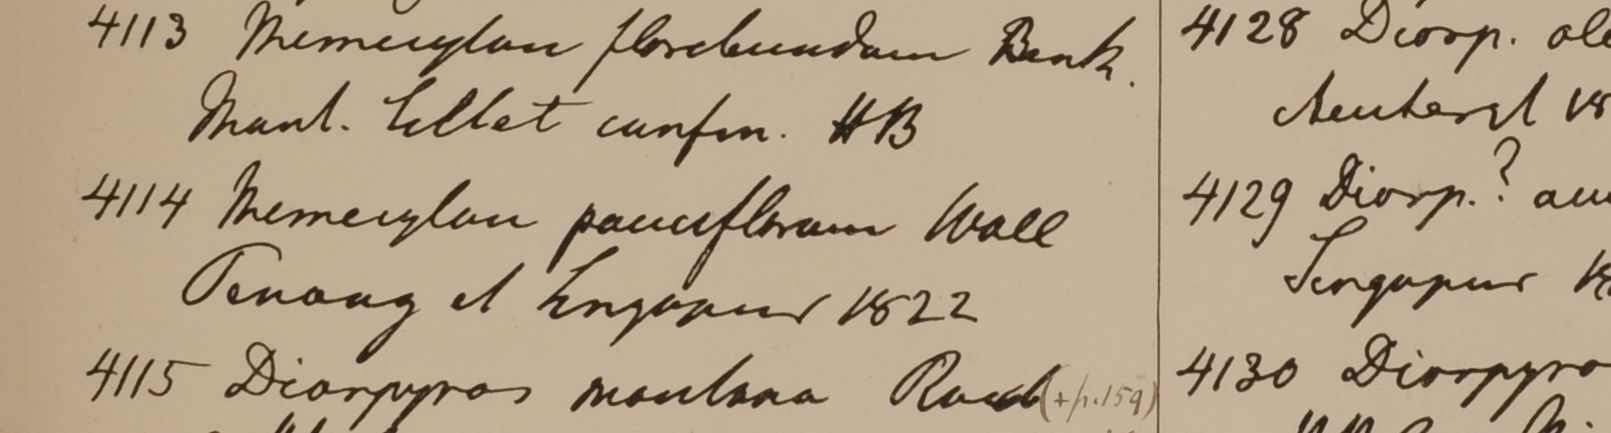 4113 Memecylon floribundum Benth.
Mant. Sillet confin. HB
4114 Memecylon pauciflorum Wall
Penang et Singapur 1822
4115 Diospyros montana Roxb (+p.159)
4128 Diosp.
18
4129 Diosp.?
Singapur
4130 Diospyro